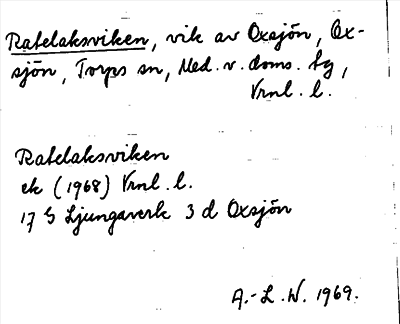 Ratelaksviken, vik av Oxsjön, Ox-
sjön, Torps sn, Med. v. doms. tg,
Vrnl. l.
Ratelaksviken
ek (1968) Vrnl. l.
17 G Ljungaverk 3 d Oxsjön
A.-L. W. 1969.